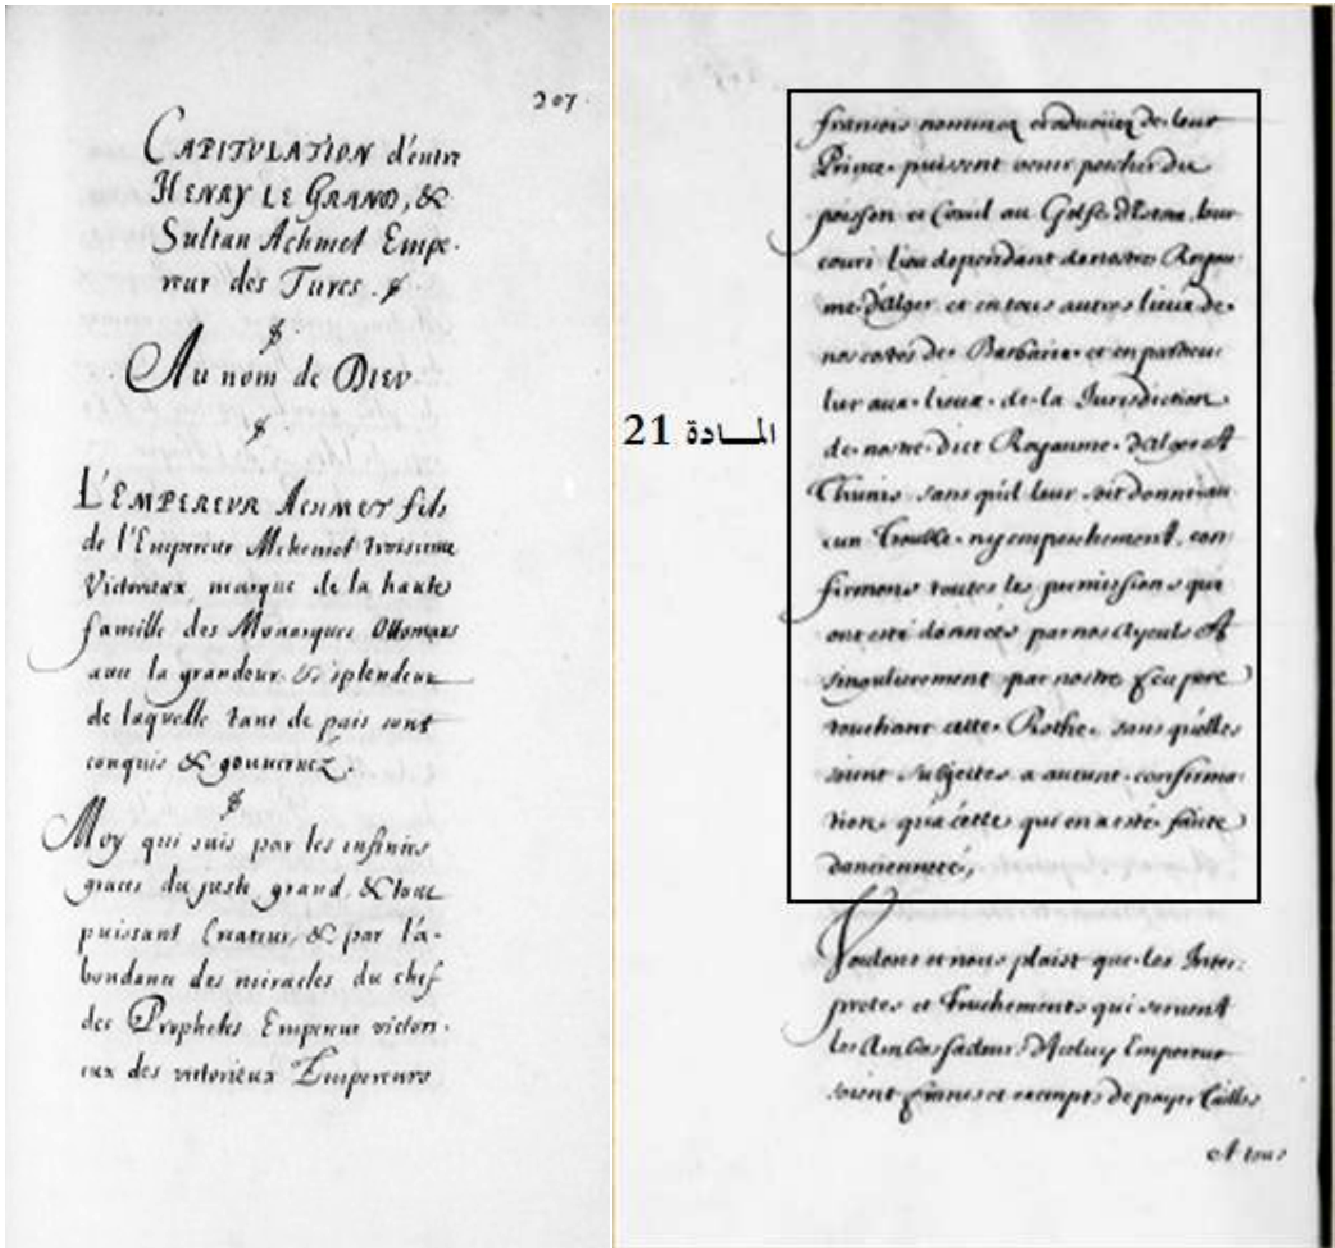 207
CAPITULATION d'entre
HENRY LE GRAND, &
Sultan Achmet Empe-
reur des Turcs.
Au nom de DIEU
L'EMPEREUR ACHMET fils
de l'Empereur Mehemet troisieme
Victorieux, marque de la haute
famille des Monarques Ottomans
avec la grandeur & splendeur
de laquelle tant de païs sont
conquis & gouvernéz.
Moy qui suis par les infinies
graces du juste grand, & tout
puissant Createur, & par l'a-
bondance des miracles du chef
des Prophetes Empereur victori-
eux des victorieux Empereurs
المادة 21
francois nommez et advoüez de leur
Prince puissent venir pescher du
poisson et Corail au Golfe
lieu dependant de nostre Royau-
me d'Alger et en tous autres lieux de
nos costes de Barbarie et en particu
lier aux lieux de la Jurisdiction
de nostre dict Royaume d'Alger et
Thunis sans qu'il leur soit donné au
cun Trouble ny empeschement, con
firmons toutes les permissions qui
ont esté données par nos Ayeuls et
singulierement par nostre feu pere
touchant cette sans qu'elles
soient subjettes a aucune confirma
tion qu'a cette qui en a esté faicte
d'ancienneté,
Voulons et nous plaist que les Inter-
pretes et Truchements qui servent
les Ambassadeurs d'Iceluy Empereur
soient et exempts de payer Tailles
Et tous